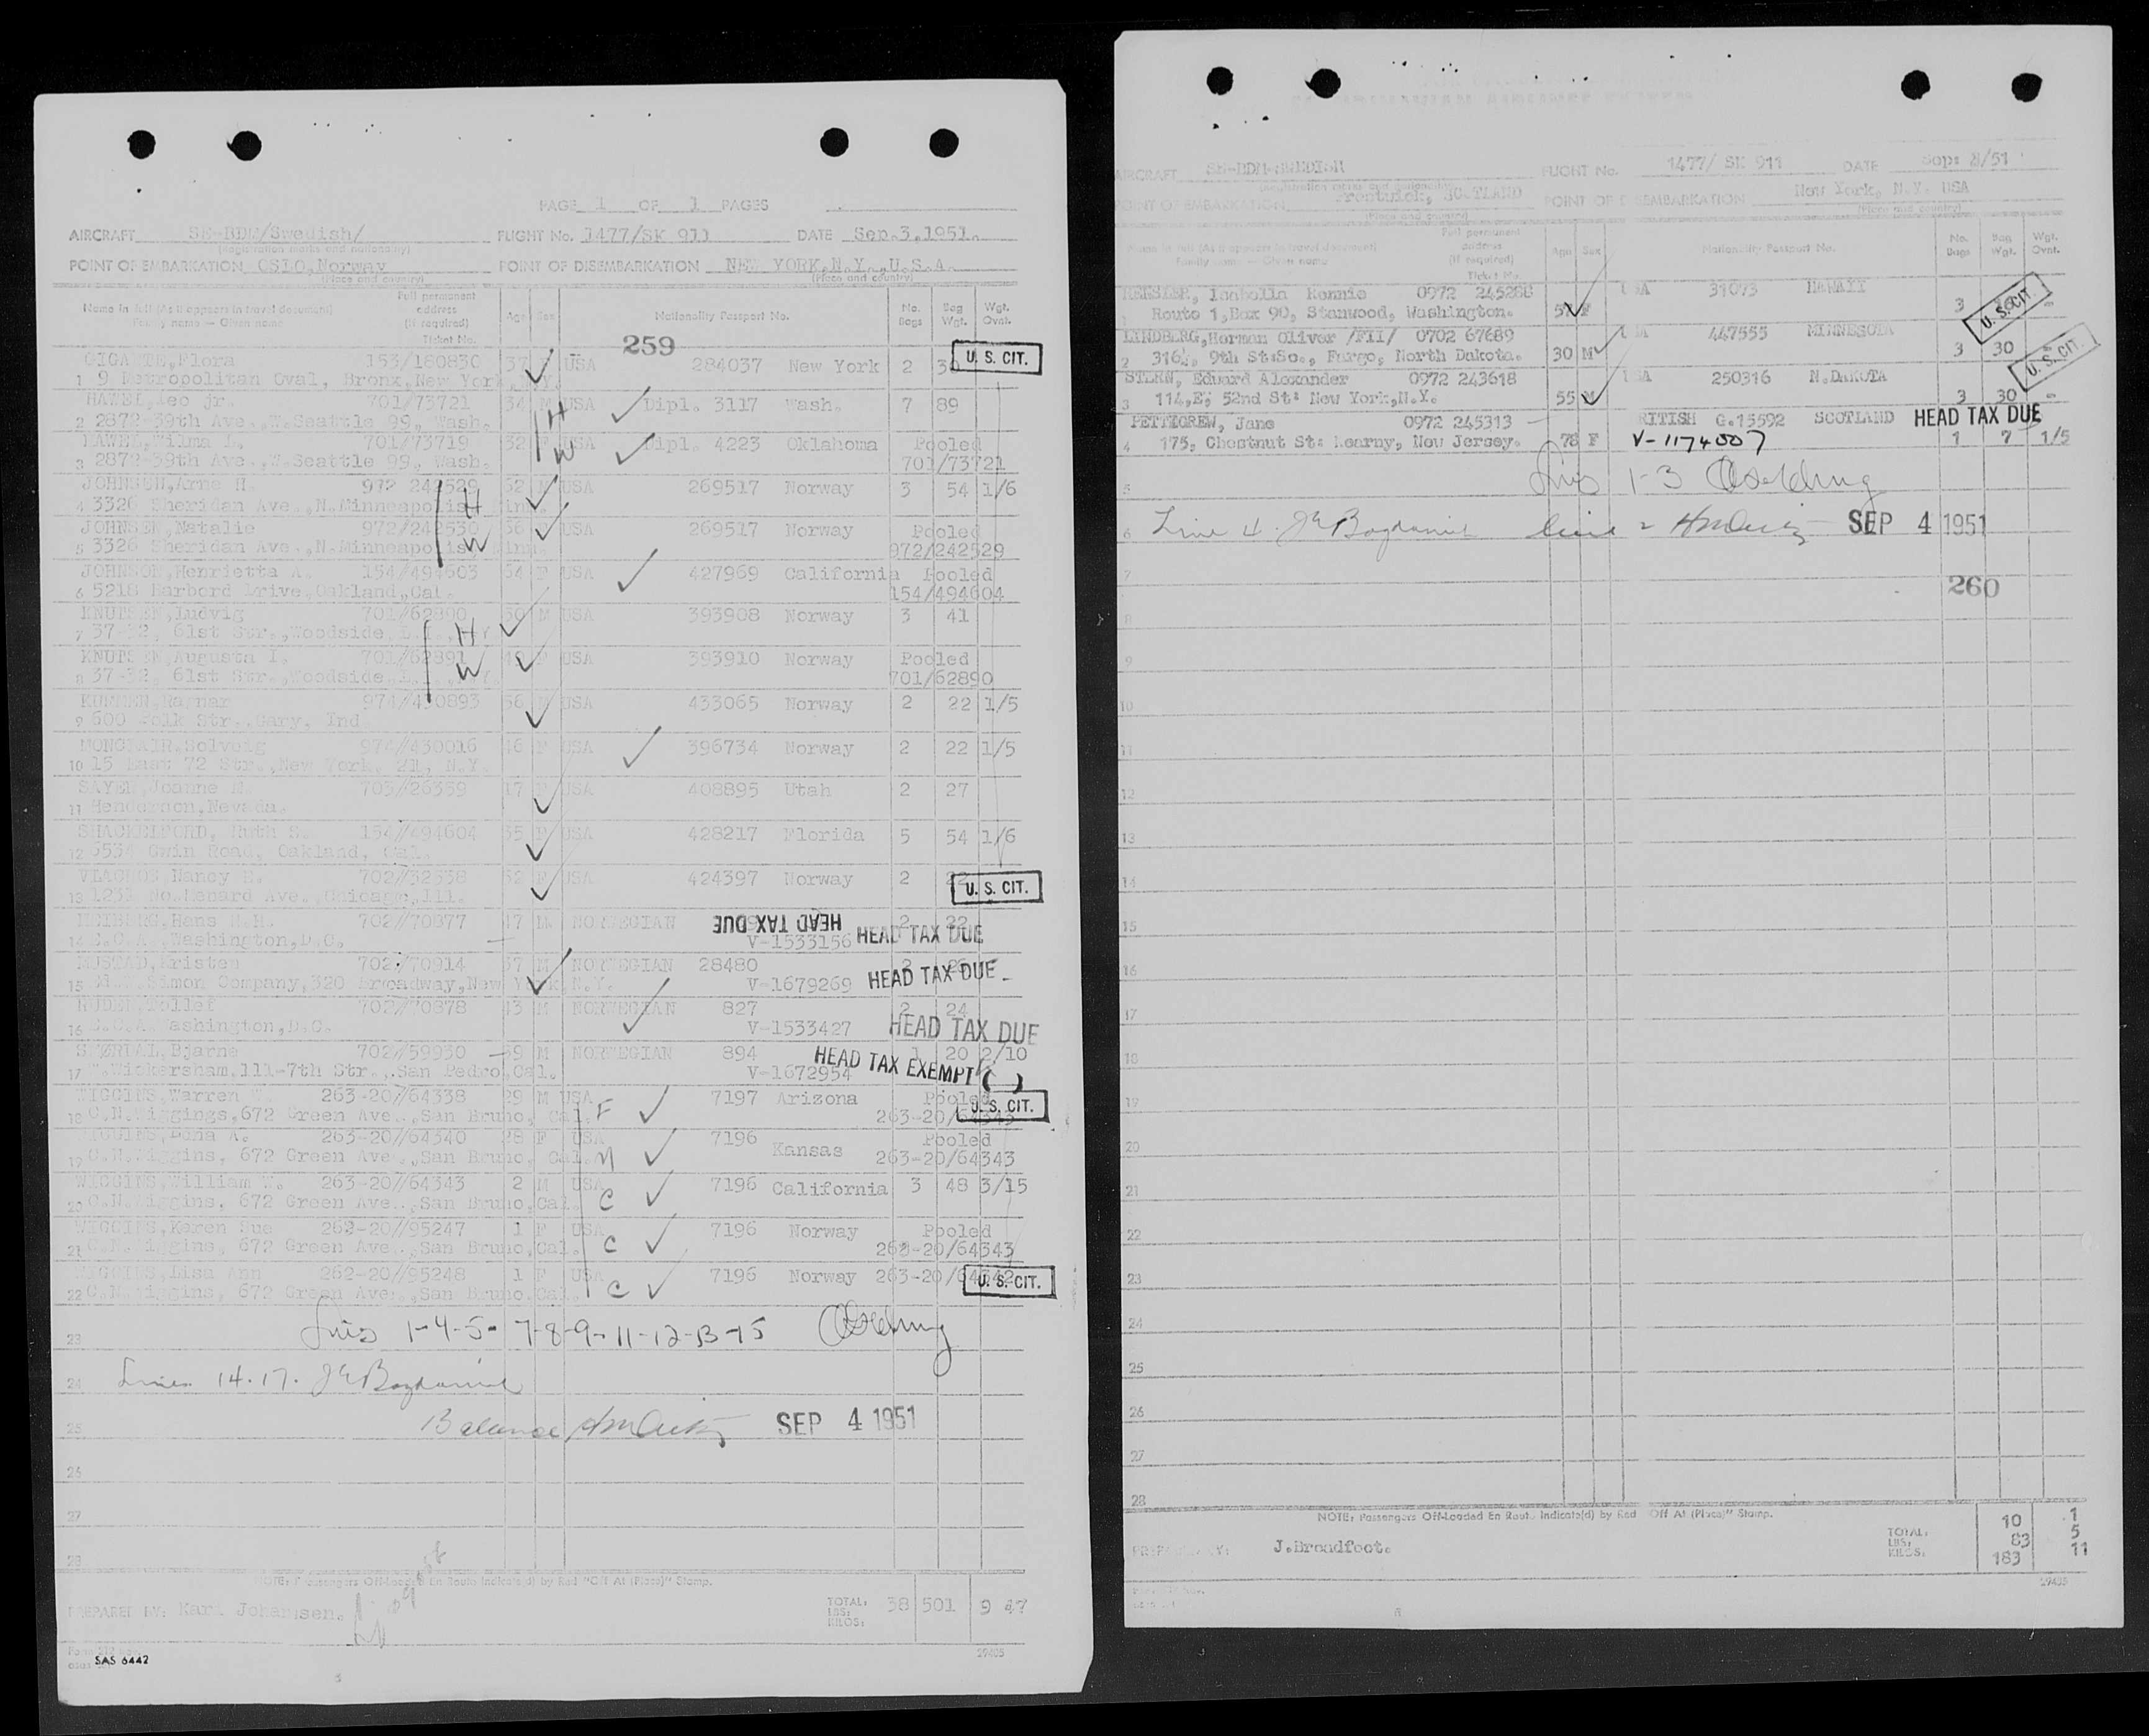 PAGE 1 OF 1 PAGES
AIRCRAFT SE-BDM/Swedish/ FLIGHT No. 1477/SK 911 DATE Sep.3,1951.
(Registration marks and nationality)
POINT OF EMBARKATION OSLO,Norway POINT OF DISEMBARKATION NEW YORK,N.Y.,U.S.A.
(Place and country) (Place and country)
Name in full (As it appears in travel document) Full permanent address (if required) Age Sex Nationality Passport No. No. Bags Bag Wgt. Wgt. Ovnt.
Family name — Given name Ticket No.
259
Flora 153/160830 37 USA 284037 New York 2 U. S. CIT.
1 9 Metropolitan Oval, Bronx, New York, N.Y.
HAWEL, Leo jr. 701/73721 34 M USA Dipl. 3117 Wash. 7 89
H
2 2872-39th Ave.,W.Seattle 99, Wash.
HAWEL,Wilma L. 701/73719 32 F USA Dipl. 4223 Oklahoma Pooled
W
3 2872-39th Ave.,W.Seattle 99, Wash. 701/73721
JOHNSEN,Arne H. 972 242529 52 M USA 269517 Norway 3 54 1/6
H
4 3326 Sheridan Ave.,N.Minneapolis Minn.
JOHNSEN,Natalie 972/242530 56 USA 269517 Norway Pooled
W
5 3326 Sheridan Ave.,N.Minneapolis Minn. 972/242529
JOHNSON,Henrietta A. 154/494603 54 F USA 427969 California Pooled
6 5218 Harbord Drive,Oakland,Cal. 154/494604
KNUTSEN,Ludvig 701/62890 50 M USA 393908 Norway 3 41
H
7 37-32, 61st Str.,Woodside,
KNUTSEN,Augusta I. 701/62891 F USA 393910 Norway Pooled
W
8 37-32, 61st Str.,Woodside, 701/62890
Ragnar 974/430893 56 USA 433065 Norway 2 22 1/5
9 600 Polk Str.,Gary, Ind.
Solveig 974/430016 46 F USA 396734 Norway 2 22 1/5
10 15 East 72 Str.,New York, 21, N.Y.
Joanne 703/26359 17 F USA 408895 Utah 2 27
11 Henderson,Nevada.
SHACKELFORD, Ruth S. 154/494604 55 F USA 428217 Florida 5 54 1/6
12 Gwin Road, Oakland, Cal.
Nancy 702/32538 52 F USA 424397 Norway 2 22
U. S. CIT.
13 1231 No.Menard Ave.,Chicago,Ill.
HEIBERG,Hans 702/70877 47 M NORWEGIAN HEAD TAX DUE 2 22
14 E.C.A.,Washington,D.C. V-1533156 HEAD TAX DUE
MUSTAD,Kristen 702/70914 57 M NORWEGIAN 28480
15 Simon Company,320 Broadway,New York,N.Y. V-1679269 HEAD TAX DUE
Tollef 702/70878 43 M NORWEGIAN 827 2 24
16 E.C.A.Washington,D.C. V-1533427 HEAD TAX DUE
Bjarne 702/59930 59 M NORWEGIAN 894 1 20 2/10
17 Wickersham,111-7th Str.,San Pedro,Cal. V-1672954 HEAD TAX EXEMPT ( )
WIGGINS,Warren W. 263-20/64338 29 M USA 7197 Arizona Pooled
F
18 C.N.Wiggings,672 Green Ave.,San Bruno, Cal. 263-20/64343 U. S. CIT.
WIGGINS,Edna A. 263-20/64340 28 F USA 7196 Kansas Pooled
M
19 C.N.Wiggins, 672 Green Ave.,San Bruno, Cal. 263-20/64343
WIGGINS,William W. 263-20/64343 2 M USA 7196 California 3 48 3/15
C
20 C.N.Wiggins, 672 Green Ave.,San Bruno,Cal.
WIGGINS,Karen Sue 262-20/95247 1 F USA 7196 Norway Pooled
C
21 C.N.Wiggins, 672 Green Ave.,San Bruno,Cal. 263-20/64343
WIGGINS,Lisa Ann 262-20/95248 1 F USA 7196 Norway 263-20/64342
C U. S. CIT.
22 C.N.Wiggins, 672 Green Ave.,San Bruno,Cal.
23 1-4-5-7-8-9-11-12-13-15
24 Lines 14.17. J E Bogdanich
25 Balance SEP 4 1951
26
27
28
NOTE: Passengers Off-Loaded En Route Indicated by Red "Off At (Place)" Stamp.
PREPARED BY: Karl Johansen. TOTAL: LBS: KILOS: 38 501 9 47
SAS 6442 29405
AIRCRAFT FLIGHT No. 1477/ SK 911 DATE Sep: 3/51
(Registration marks and nationality)
POINT OF EMBARKATION Prestwick, SCOTLAND POINT OF DISEMBARKATION New York, N.Y. USA
(Place and country) (Place and country)
Name in full (As it appears in travel document) Full permanent address (if required) Age Sex Nationality Passport No. No. Bags Bag Wgt. Wgt. Ovnt.
Family name — Given name Ticket No.
Isabella Rennie 0972 245288 F USA 31073 HAWAII 3 U. S. CIT.
1 Route 1,Box 90, Stanwood, Washington.
LINDBERG,Herman Oliver /FII/ 0702 67689 30 M USA 447555 MINNESOTA 3 30
2 316½, 9th St:So., Fargo, North Dakota.
U. S. CIT.
STERN, Eduard Alexander 0972 243618 55 M USA 250316 N.DAKOTA 3 30
3 114,E, 52nd St: New York,N.Y.
PETTIGREW, Jane 0972 245313 78 F BRITISH G.15592 SCOTLAND HEAD TAX DUE
4 175, Chestnut St: Kearny, New Jersey. V-1174007 1 7 1/5
5 1-3
6 Line 4. J E Bogdanich SEP 4 1951
7 260
8
9
10
11
12
13
14
15
16
17
18
19
20
21
22
23
24
25
26
27
28
NOTE: Passengers Off-Loaded En Route Indicate(d) by Red Off At (Place)" Stamp.
PREPARED BY: J.Broadfoot. TOTAL: 10 1
LBS: 83 5
KILOS: 183 11
29405